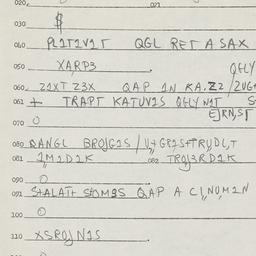 020
021
030 $
040 PL1T1V1T QGL RET A SAX
050 XARP3 QFLY
060 21XT Z3X QAP 1N KA.Z2 /2UG
061 + TRAPT KATUV1S QFLY N1T S
EJRN,ST
070 0
080 DANGL BROJG1S /
081 1M1D1K 082 TROJ3RD1K
090 0
091 S+ALAT+ S+OMBS QAP A C1,NOM1N
100 0
110 XSROJN1S